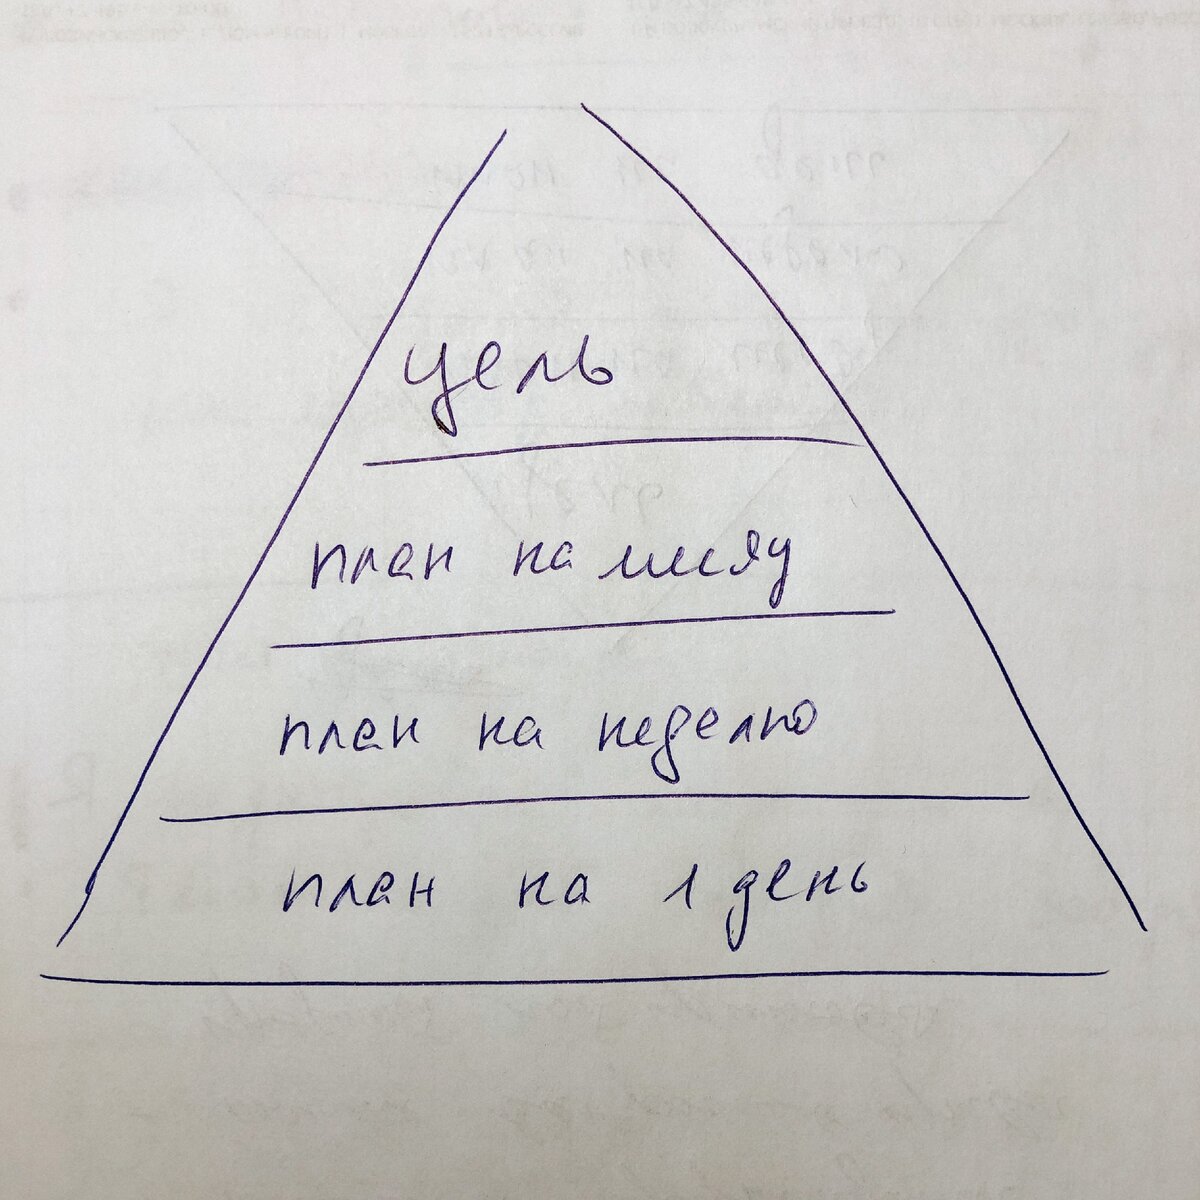 цель
план на месяц
план на неделю
план на 1 день